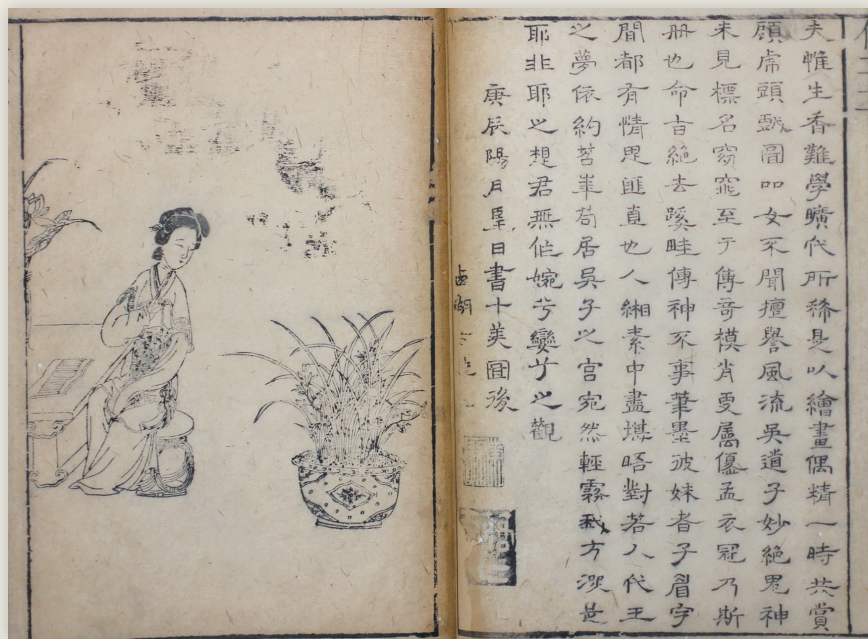 夫惟生香難學曠代所稀是以繪畫偶精一時共賞
顧虎頭戲圖女不聞擅譽風流吳道子妙絕鬼神
未見標名窈窕至于傳奇模肖更屬優孟衣冠乃斯
冊也命旨絕去蹊畦傳神不事筆墨彼姝者子眉宇
間都有情思匪直也人緗素中盡堪晤對若人代王
之夢依約苕峯苟居吳子之宮宛然輕霧我方深是
耶非耶之想君無作婉兮孌兮之觀
庚辰陽月望日書十美圖後